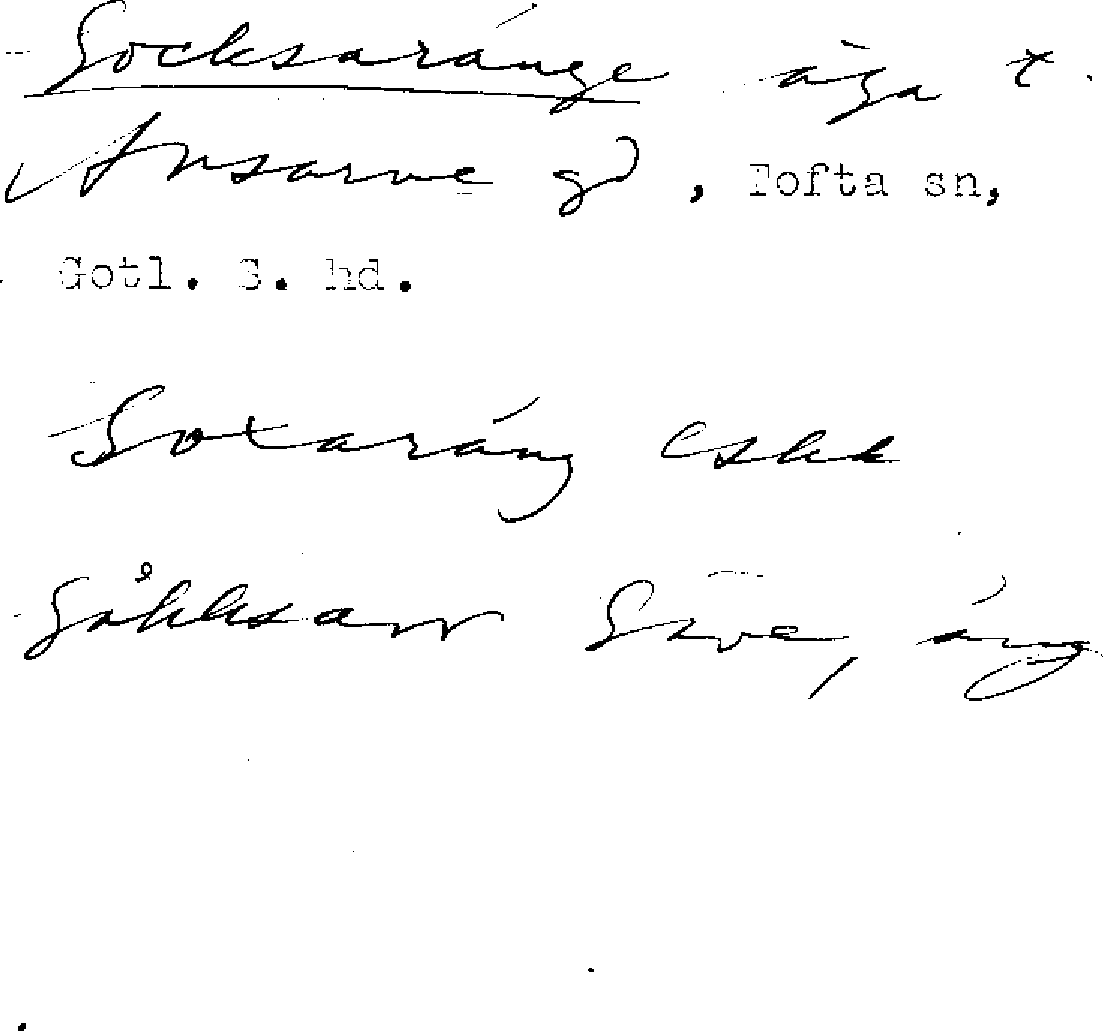 Socksaränge äga t.
Ansarve gd, Tofta sn,
Gotl. S. hd.
Soxaräng
Såkksarr Säve, äng